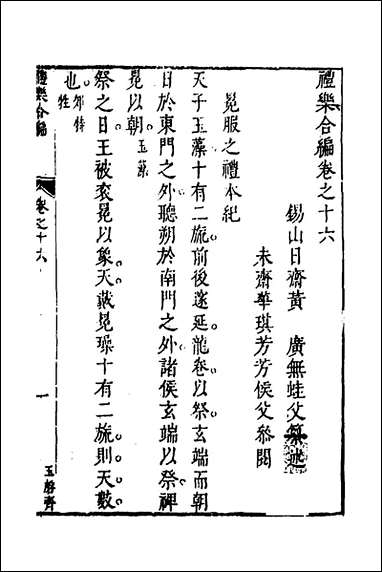 禮樂合編卷之十六
錫山日齋黃　廣無蛙父纂述
未齋華琪芳芳侯父叅閱
冕服之禮本紀
天子玉藻十有二旒前後邃延龍卷以祭玄端而朝
日於東門之外聽朔於南門之外諸侯玄端以祭裨
冕以朝玉藻
祭之日王被袞冕以象天戴冕璪十有二旒則天數
也郊特牲
禮樂合編
卷之十六
一
玉磬齋